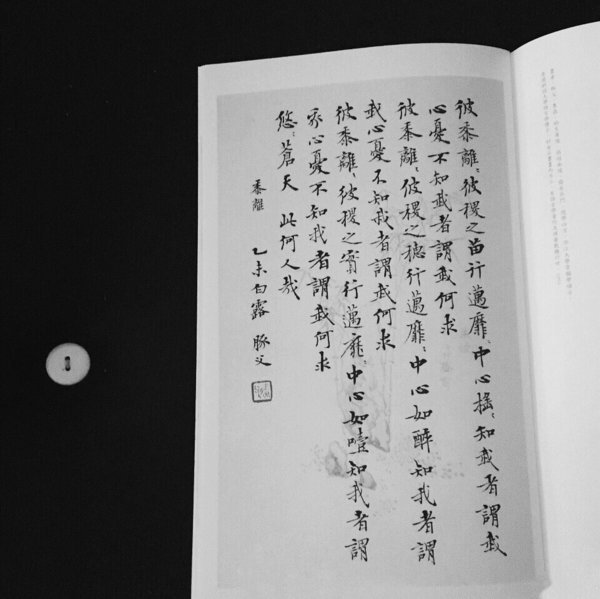 彼黍離〻彼稷之苗行邁靡〻中心搖〻知我者謂我
心憂不知我者謂我何求
彼黍離〻彼稷之穗行邁靡〻中心如醉知我者謂
我心憂不知我者謂我何求
彼黍離〻彼稷之實行邁靡〻中心如噎知我者謂
我心憂不知我者謂我何求
悠〻蒼天 此何人哉
黍離 乙未白露 豚父